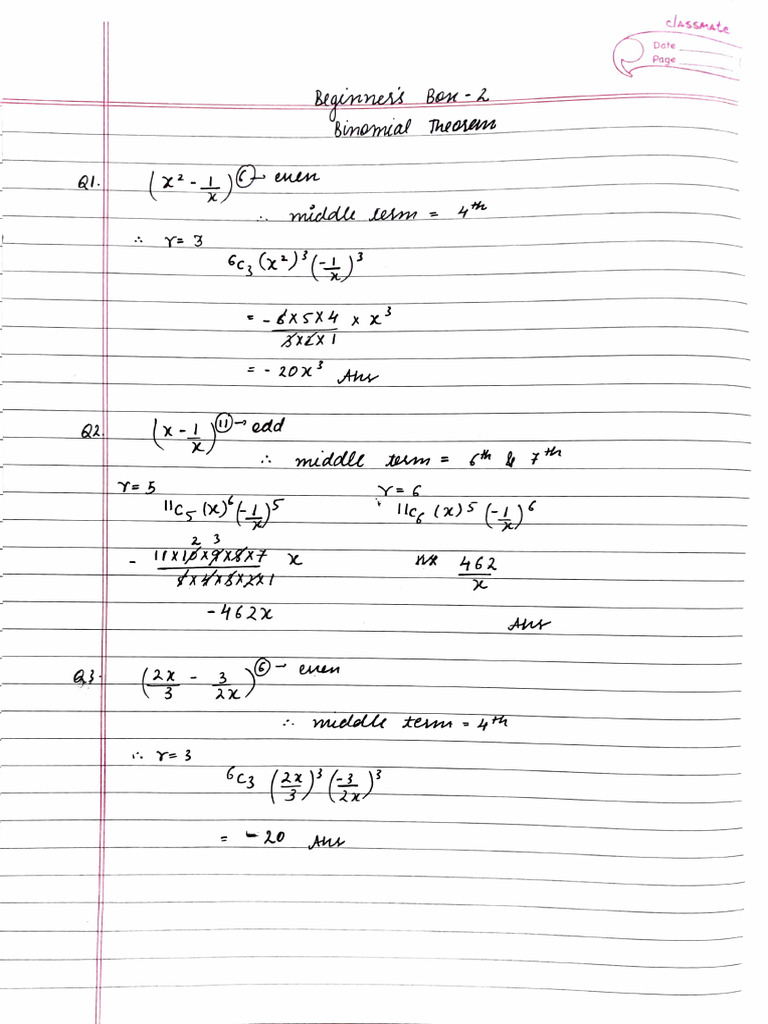 classmate
Date
Page
Beginner's Box - 2
Binomial Theorem
Q1. (x² - 1/x)⁶ → even
∴ middle term = 4th
∴ r = 3
⁶C₃ (x²)³ (-1/x)³
= - 6×5×4 / 3×2×1 × x³
= - 20x³ Ans
Q2. (x - 1/x)¹¹ → odd
∴ middle term = 6th & 7th
r = 5 r = 6
¹¹C₅ (x)⁶ (-1/x)⁵ ¹¹C₆ (x)⁵ (-1/x)⁶
2 3
- 11×10×9×8×7 / 5×4×3×2×1 x 462/x
- 462x
Ans
Q3. (2x/3 - 3/2x)⁶ → even
∴ middle term = 4th
∴ r = 3
⁶C₃ (2x/3)³ (-3/2x)³
= - 20 Ans